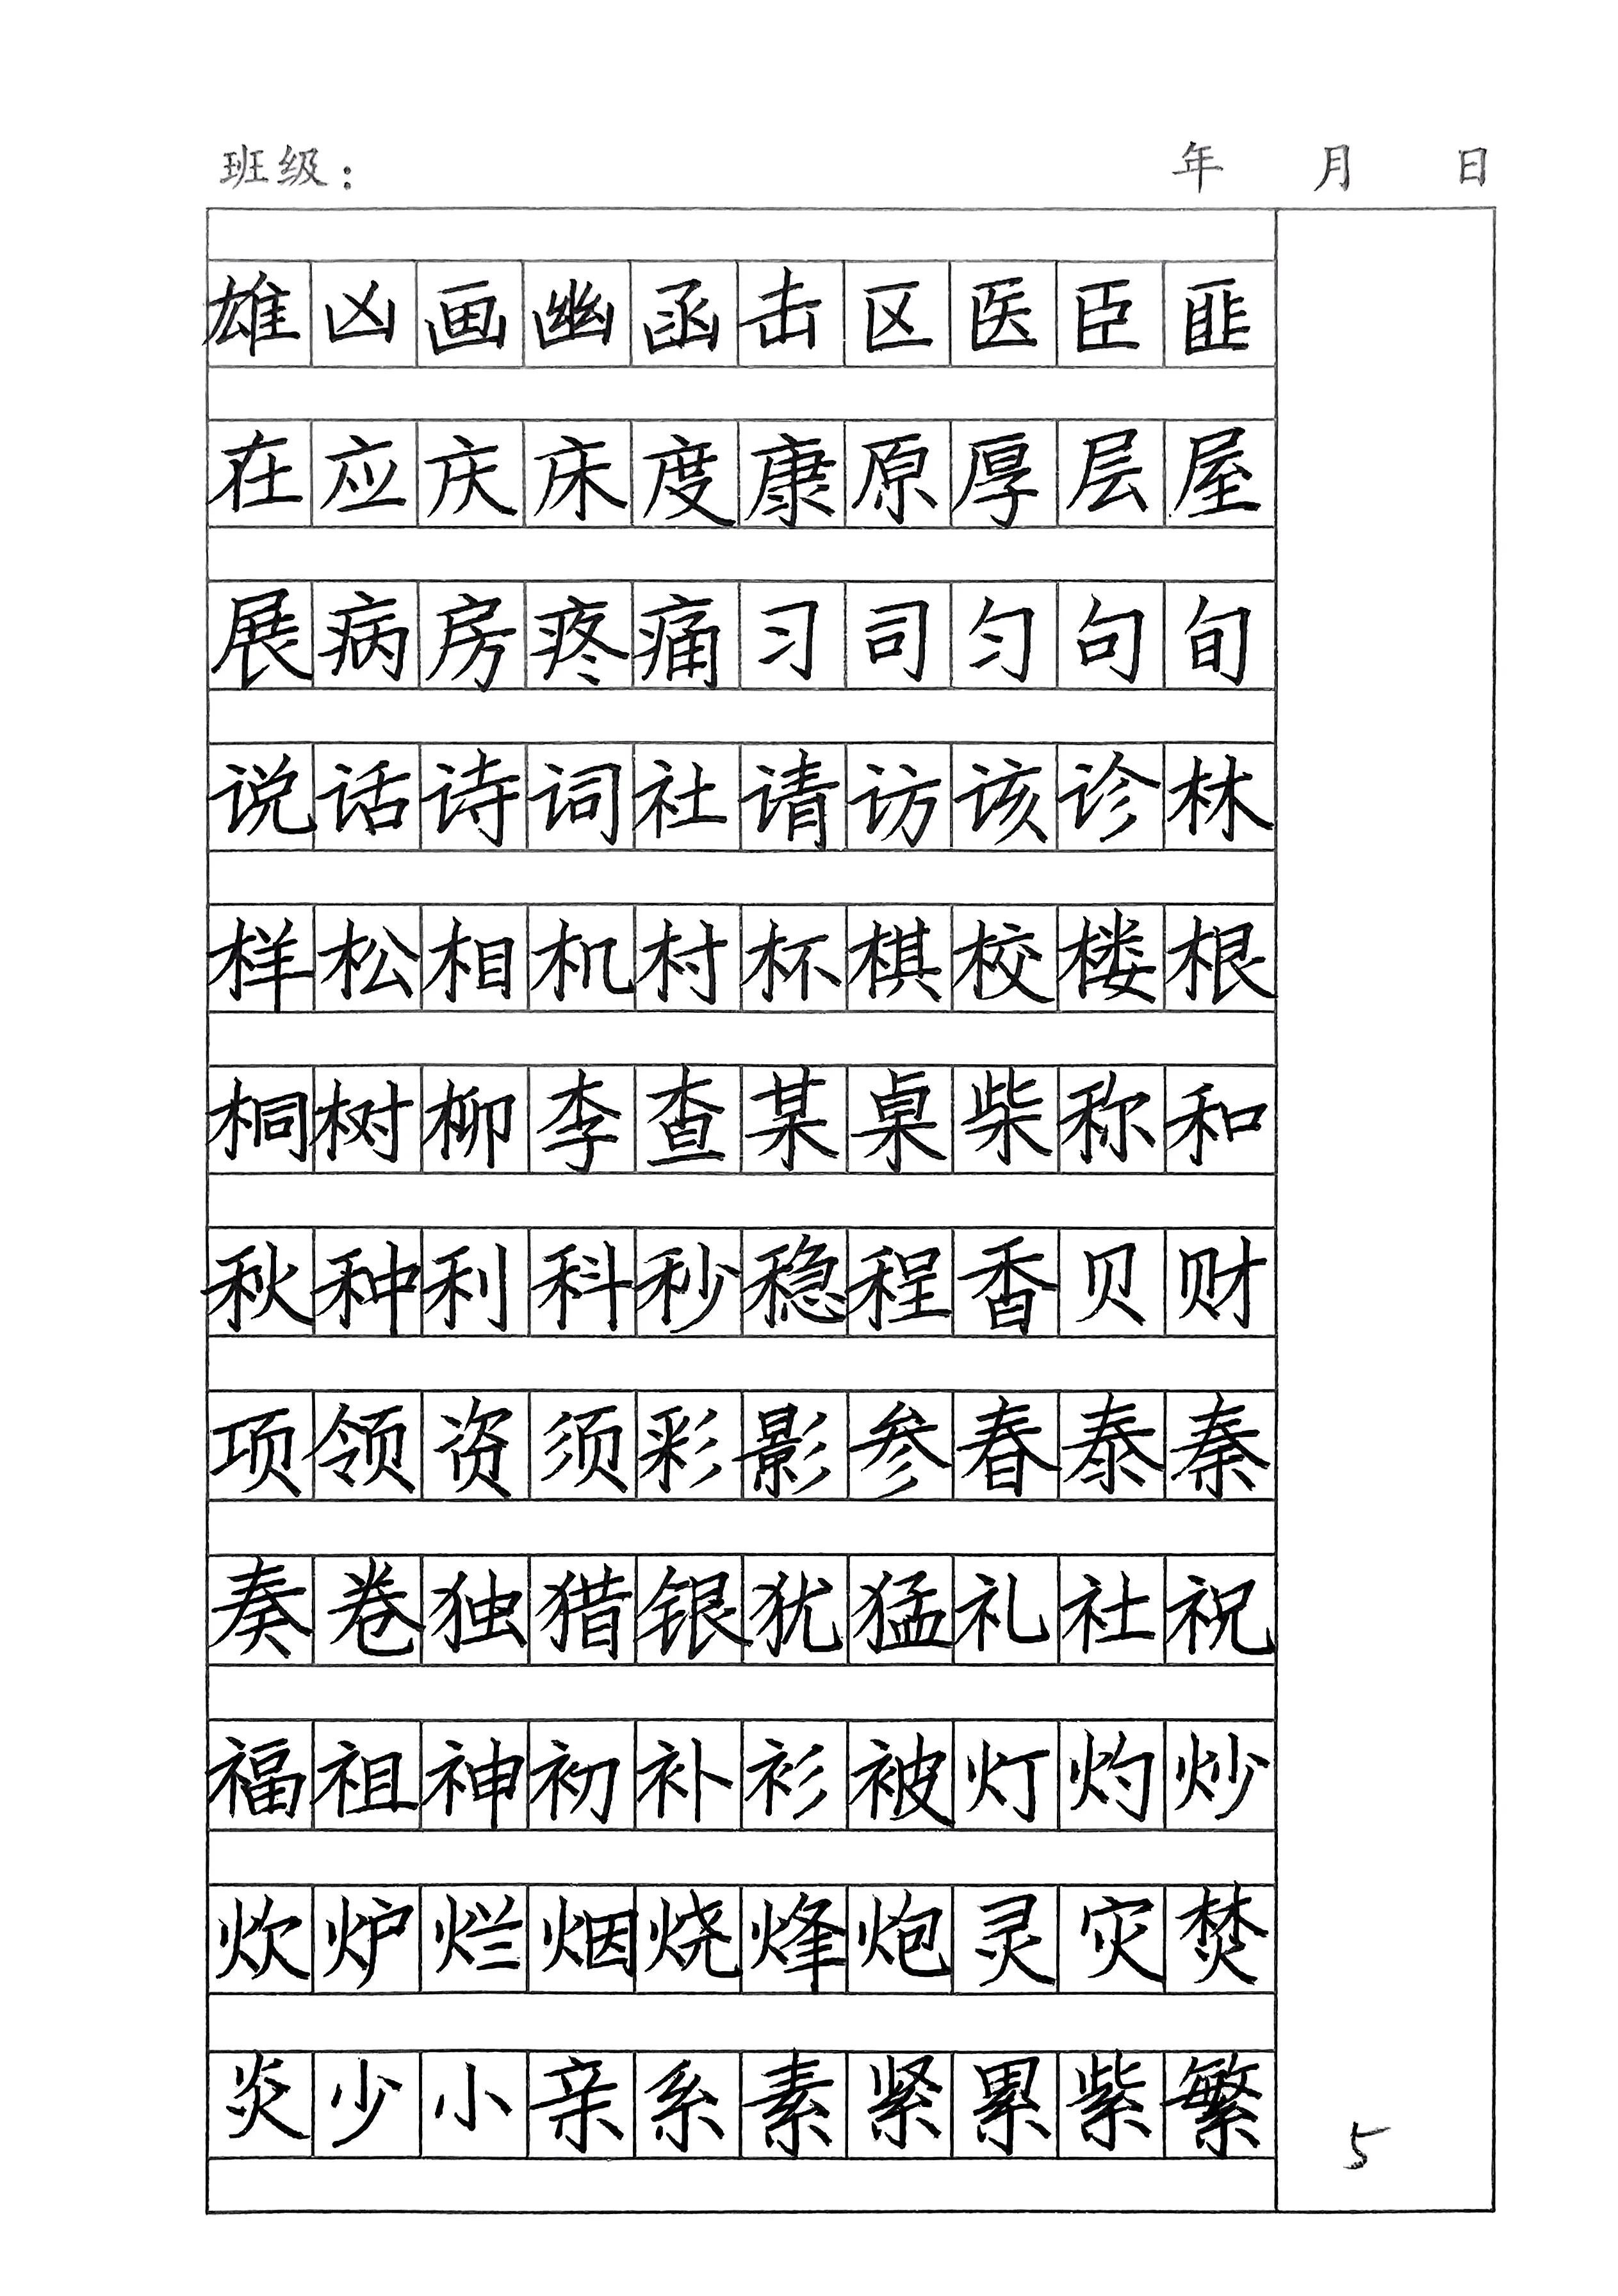 班级： 年 月 日
雄凶画幽函击区医臣匪
在应庆床度康原厚层屋
展病房疼痛习司匀句旬
说话诗词社请访该诊林
样松相机村杯棋校楼根
桐树柳李查某桌柴称和
秋种利科秒稳程香贝财
项领资须彩影参春泰秦
奏卷独猎银犹猛礼社祝
福祖神初补衫被灯灼炒
炊炉烂烟烧烽炮灵灾焚
炎少小亲系素紧累紫繁
5